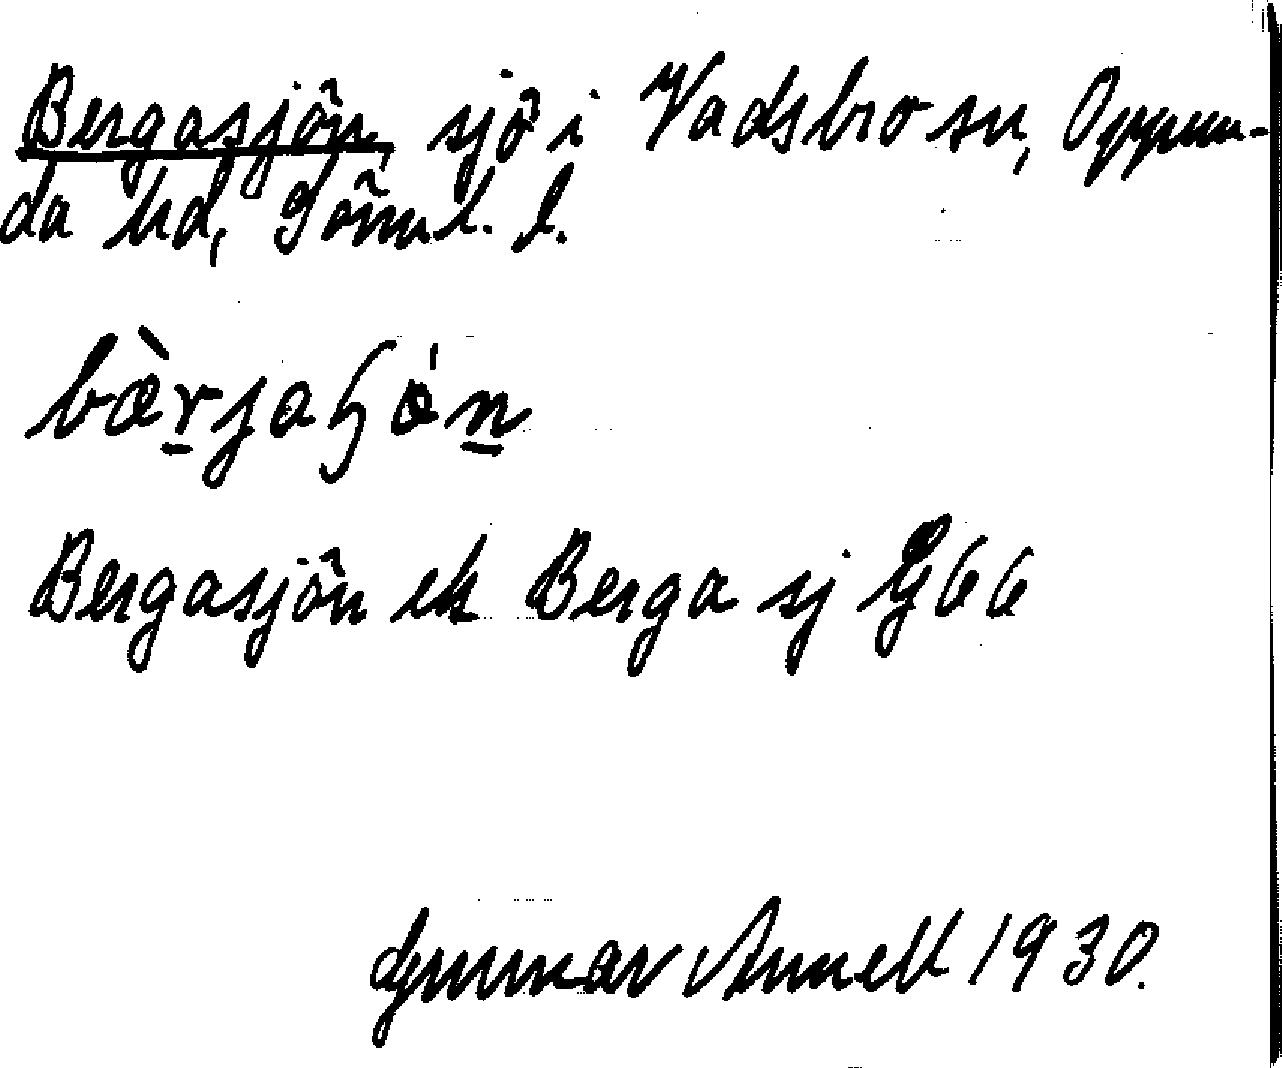 Bergasjön, sjö i Vadsbro sn, Oppun-
da hd, Söml. l.
bæ̀r̠jaɧǿn̠
Bergasjön ek Berga sj G 66
Gunnar Annell 1930.